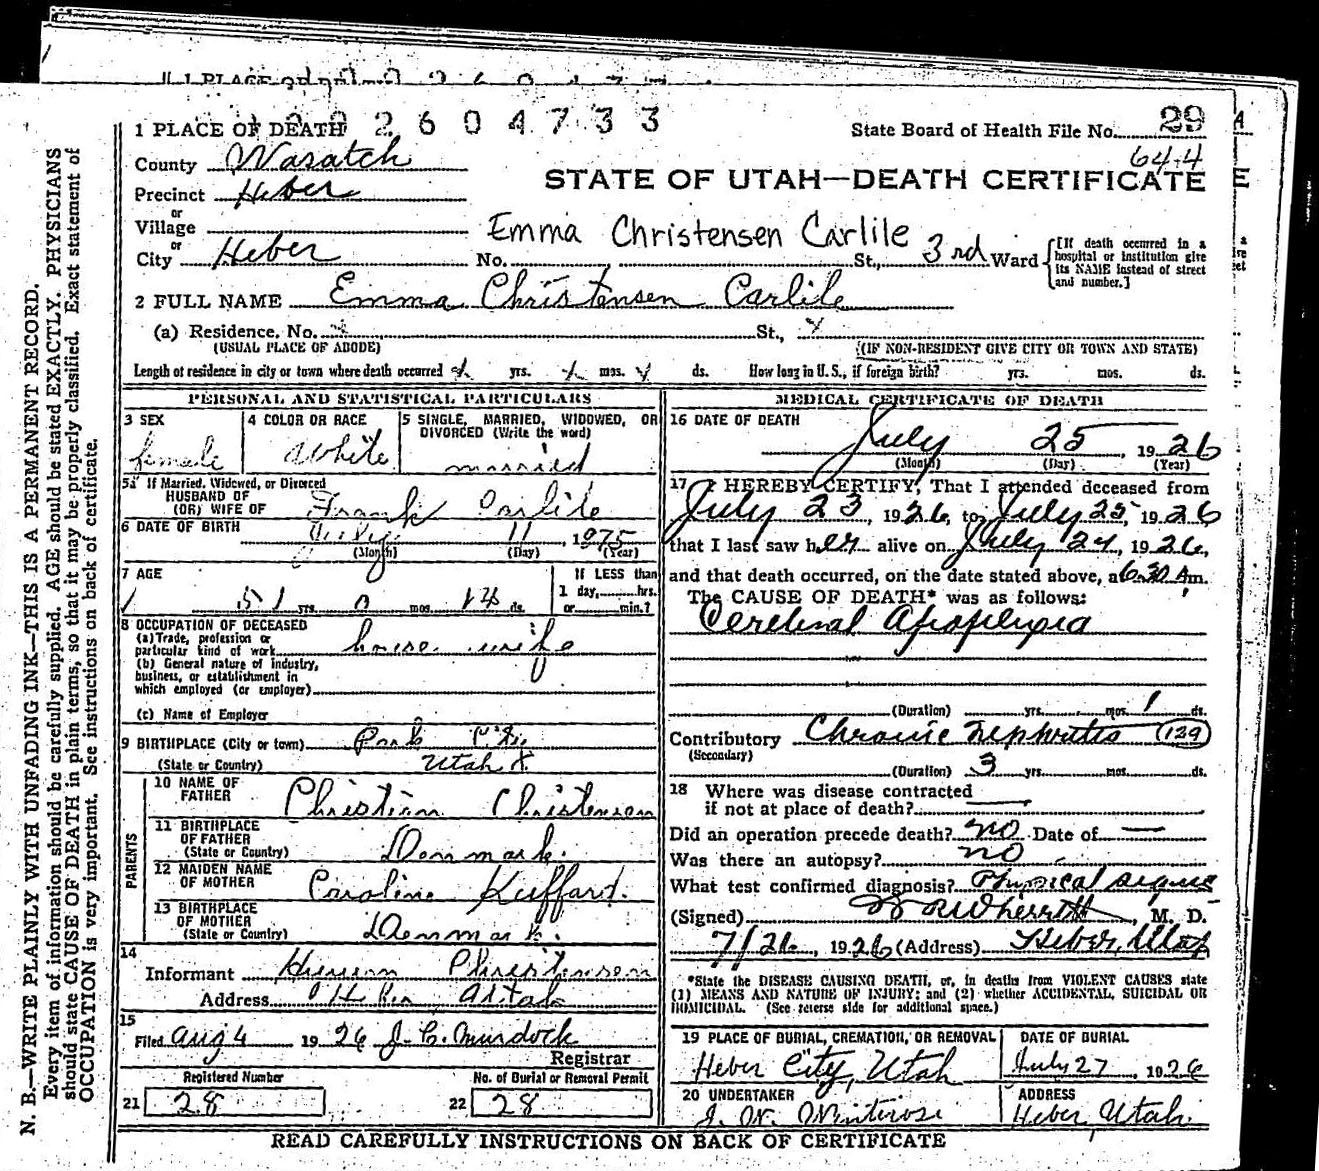 1 PLACE OF DEATH 2 6 0 4 7 3 3 State Board of Health File No. 29
644
County Wasatch
STATE OF UTAH—DEATH CERTIFICATE
Precinct Heber
or
Village
or
Emma Christensen Carlile
City Heber No. St., 3rd Ward
[If death occurred in a hospital or institution give its NAME instead of street and number.]
2 FULL NAME Emma Christensen Carlile
(a) Residence. No. St.,
(USUAL PLACE OF ABODE) (IF NON-RESIDENT GIVE CITY OR TOWN AND STATE)
Length of residence in city or town where death occurred yrs. mos. ds. How long in U. S., if foreign birth? yrs. mos. ds.
PERSONAL AND STATISTICAL PARTICULARS
3 SEX
female
4 COLOR OR RACE
White
5 SINGLE, MARRIED, WIDOWED, OR DIVORCED (Write the word)
married
5a If Married, Widowed, or Divorced
HUSBAND OF
(OR) WIFE OF Frank Carlile
6 DATE OF BIRTH July 11, 1975
(Month) (Day) (Year)
7 AGE
51 yrs. 0 mos. 14 ds.
If LESS than
1 day, hrs.
or min.?
8 OCCUPATION OF DECEASED
(a) Trade, profession or
particular kind of work house wife
(b) General nature of industry,
business, or establishment in
which employed (or employer)
(c) Name of Employer
9 BIRTHPLACE (City or town) Park City
(State or Country) Utah
PARENTS
10 NAME OF
FATHER Christian Christensen
11 BIRTHPLACE
OF FATHER
(State or Country) Denmark.
12 MAIDEN NAME
OF MOTHER Caroline
13 BIRTHPLACE
OF MOTHER
(State or Country) Denmark.
14
Informant Hyrum Christensen
Address Heber Utah
15
Filed Aug 4 1926 J. C. Murdock
Registrar
Registered Number
21 28
No. of Burial or Removal Permit
22 28
MEDICAL CERTIFICATE OF DEATH
16 DATE OF DEATH
July 25, 1926
(Month) (Day) (Year)
17 I HEREBY CERTIFY, That I attended deceased from
July 23, 1926, to July 25, 1926
that I last saw her alive on July 24, 1926,
and that death occurred, on the date stated above, at 6:30 Am.
The CAUSE OF DEATH* was as follows:
Cerebral Apoplexia
(Duration) yrs. mos. 1 ds.
Contributory Chronic nephritis (129)
(Secondary)
(Duration) 3 yrs. mos. ds.
18 Where was disease contracted
if not at place of death?
Did an operation precede death? no Date of —
Was there an autopsy? no
What test confirmed diagnosis? Physical signs
(Signed) Wherritt, M. D.
7/26, 1926 (Address) Heber, Utah
*State the DISEASE CAUSING DEATH, or, in deaths from VIOLENT CAUSES state
(1) MEANS AND NATURE OF INJURY; and (2) whether ACCIDENTAL, SUICIDAL OR
HOMICIDAL. (See reverse side for additional space.)
19 PLACE OF BURIAL, CREMATION, OR REMOVAL
Heber City, Utah
DATE OF BURIAL
July 27, 1926
20 UNDERTAKER
ADDRESS
Heber, Utah.
READ CAREFULLY INSTRUCTIONS ON BACK OF CERTIFICATE
N. B.—WRITE PLAINLY WITH UNFADING INK—THIS IS A PERMANENT RECORD.
Every item of information should be carefully supplied. AGE should be stated EXACTLY. PHYSICIANS
should state CAUSE OF DEATH in plain terms, so that it may be properly classified. Exact statement of
OCCUPATION is very important. See instructions on back of certificate.